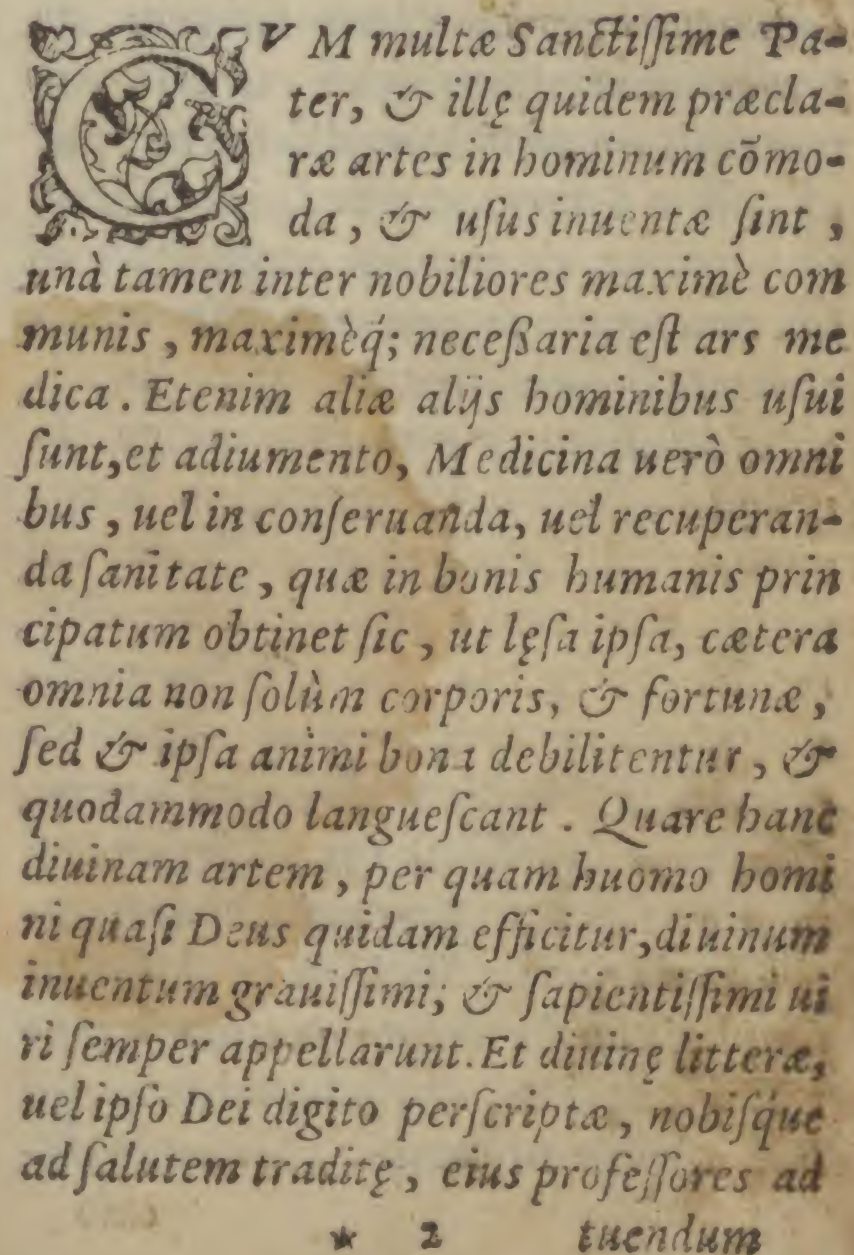 CVM multæ Sanctiſſime Pa-
ter, & illę quidem præcla-
ræ artes in hominum cõmo-
da, & uſus inuentæ ſint,
unà tamen inter nobiliores maximè com
munis, maximèq́; neceßaria eſt ars me
dica. Etenim aliæ alijs hominibus uſui
ſunt, et adiumento, Medicina uerò omni
bus, uel in conſeruanda, uel recuperan-
da ſanitate, quæ in bonis humanis prin
cipatum obtinet ſic, ut lęſa ipſa, cætera
omnia non ſolùm corporis, & fortunæ,
ſed & ipſa animi bona debilitentur, &
quodammodo langueſcant. Quare hanc
diuinam artem, per quam huomo homi
ni quaſi Deus quidam efficitur, diuinum
inuentum grauiſſimi; & ſapientiſſimi ui
ri ſemper appellarunt. Et diuinę litteræ,
uel ipſo Dei digito perſcriptæ, nobiſq́ue
ad ſalutem traditę, eius profeſſores ad
* 2 tuendum